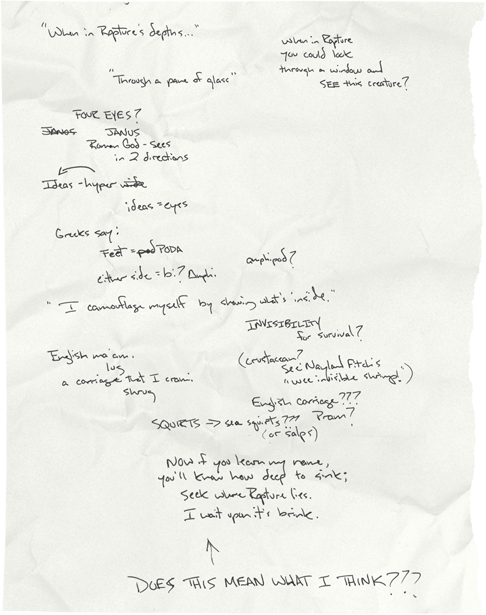 "When in Rapture's depths..."
when in Rapture
you could look
through a window and
SEE this creature?
"Through a pane of glass"
FOUR EYES?
JANOS JANUS
Roman God - sees
in 2 directions
Ideas - hyper wide
ideas = eyes
Greeks say:
Feet = pod PODA
either side = bi? Amphi.
amphipod?
"I camouflage myself by showing what's inside."
INVISIBILITY
for survival?
(crustacean?
See Nayland Fitch's
"wee invisible shrimp!")
English ma'am.
lug
a carriage that I cram.
shrug
English carriage???
Pram?
SQUIRTS → sea squirts???
(or salps)
Now if you learn my name,
you'll know how deep to sink;
Seek where Rapture lies.
I wait upon it's brink.
DOES THIS MEAN WHAT I THINK???